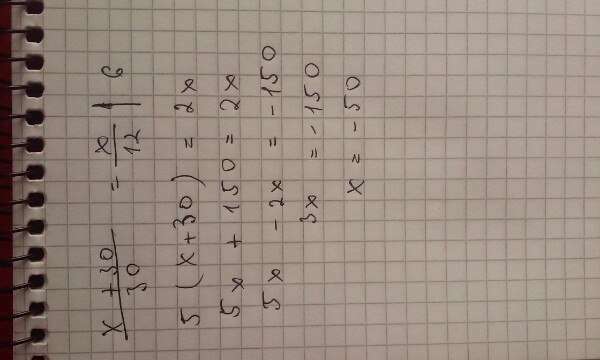 x + 30 / 30 = x / 12 | 6
5 (x+30) = 2x
5x + 150 = 2x
5x - 2x = -150
3x = -150
x = -50